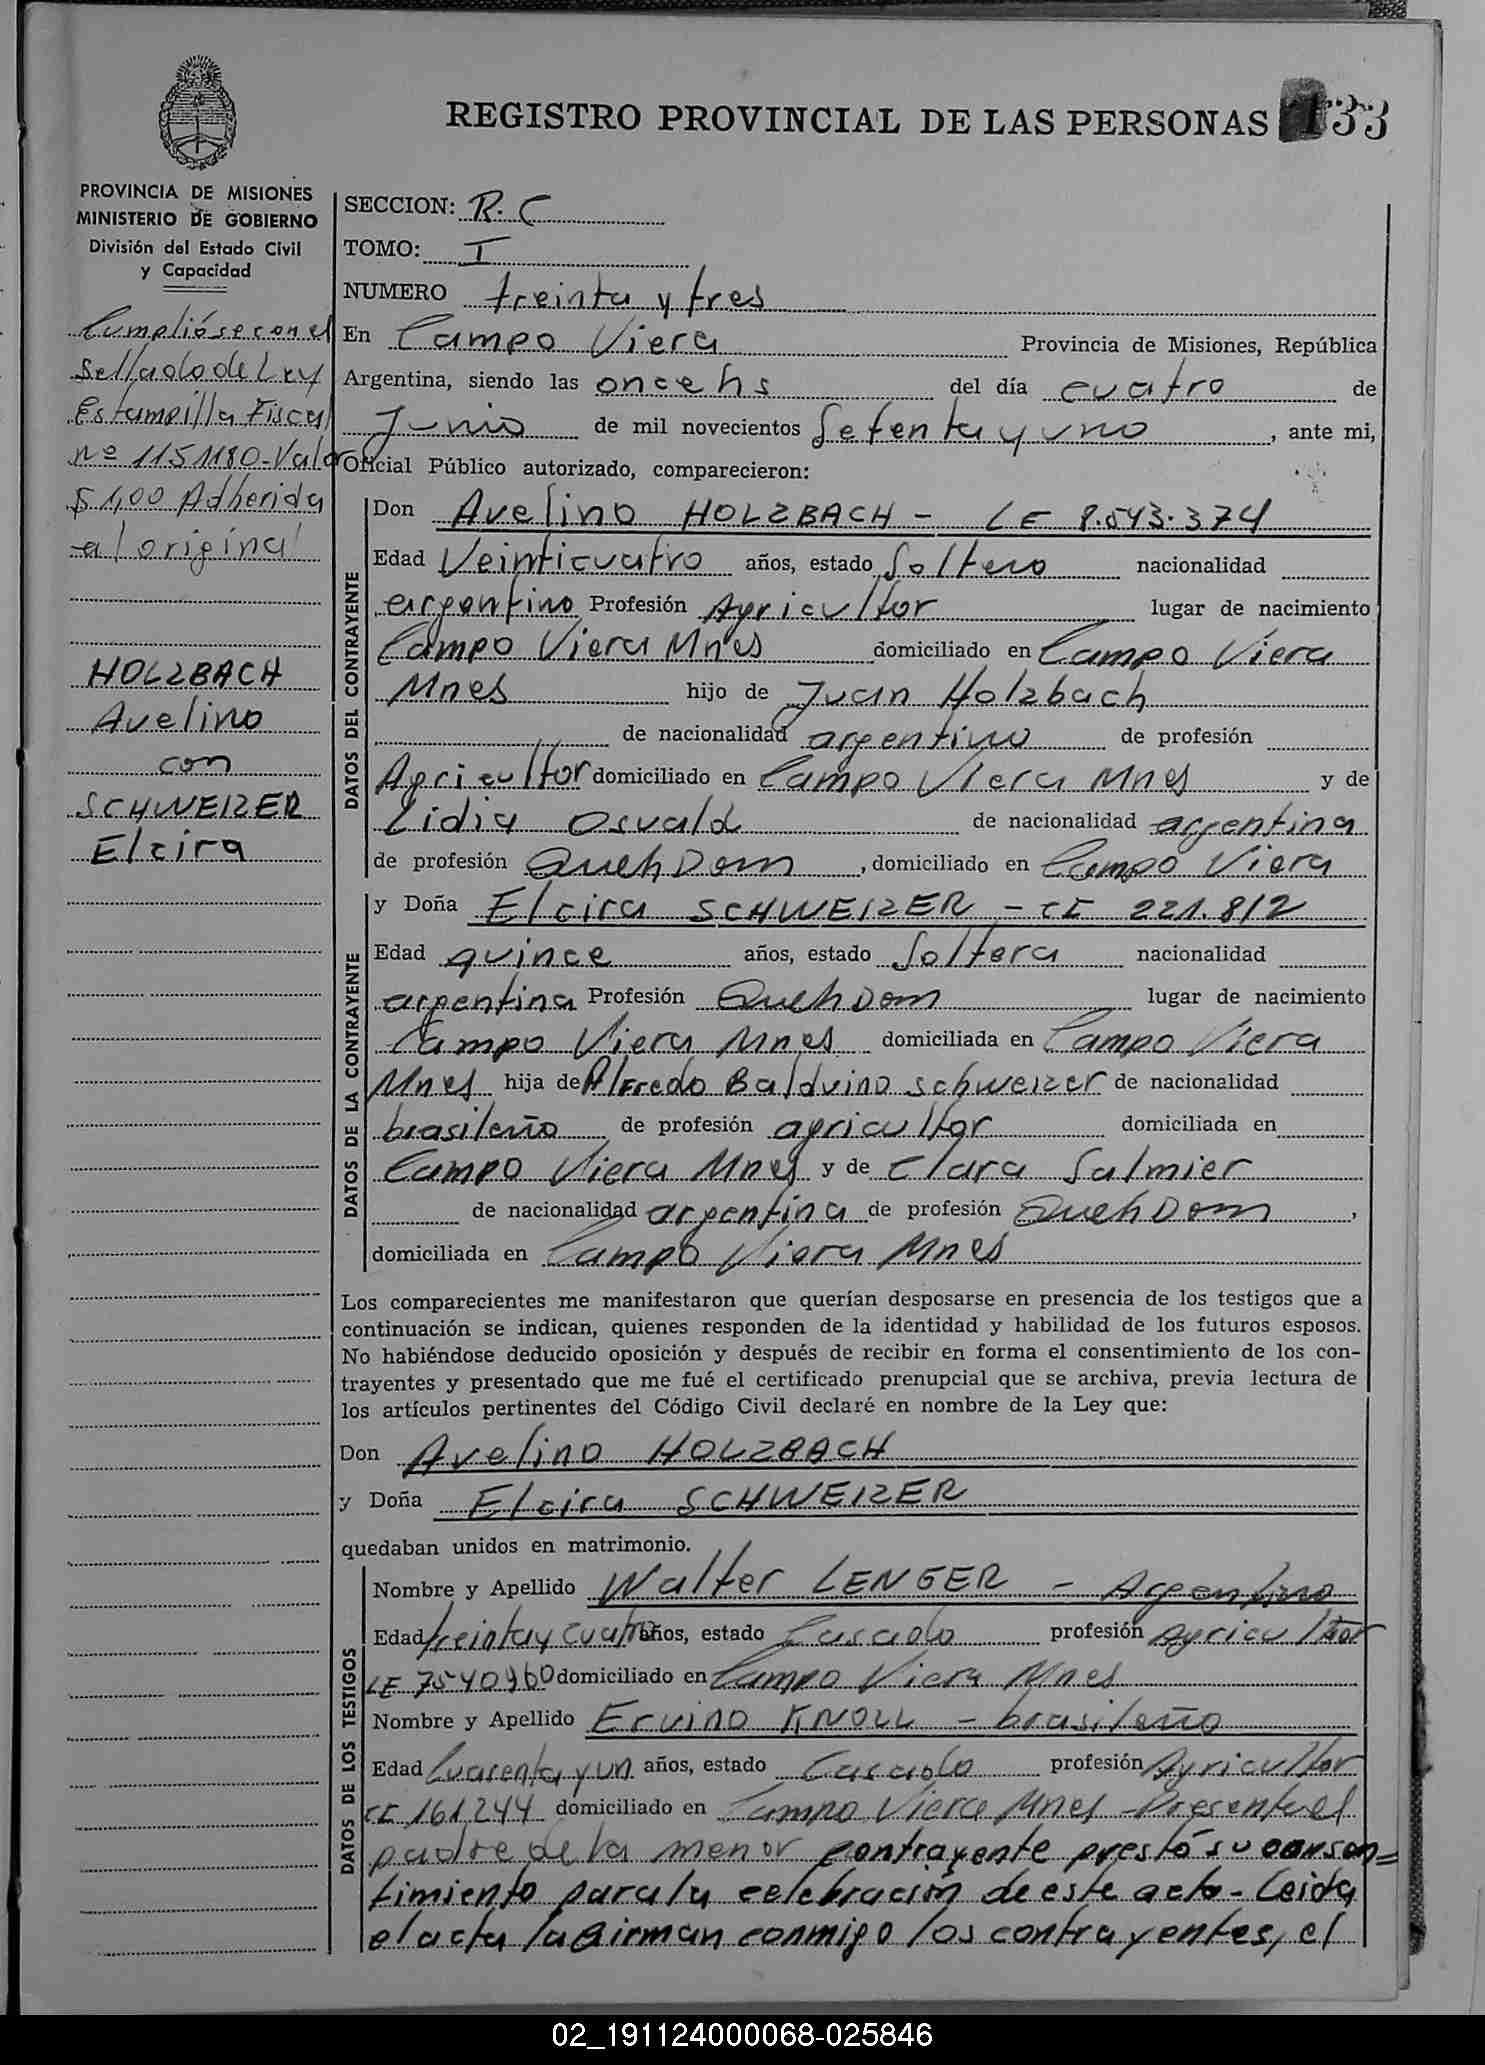 REGISTRO PROVINCIAL DE LAS PERSONAS 133
PROVINCIA DE MISIONES
MINISTERIO DE GOBIERNO
División del Estado Civil
y Capacidad
Cumplióse con el
Sellado de Ley
Estampilla Fiscal
nº 1151180-Valor
$ 1,00 Adherida
al original
HOLZBACH
Avelino
con
SCHWEIZER
Elcira
SECCION: R.C
TOMO: I
NUMERO treinta y tres
En Campo Viera Provincia de Misiones, República
Argentina, siendo las once hs del día cuatro de
Junio de mil novecientos Setenta y uno, ante mi,
Oficial Público autorizado, comparecieron:
DATOS DEL CONTRAYENTE
Don Avelino HOLZBACH - LE 8.543.374
Edad Veinticuatro años, estado Soltero nacionalidad
argentino Profesión Agricultor lugar de nacimiento
Campo Viera Mnes domiciliado en Campo Viera
Mnes hijo de Juan Holzbach
de nacionalidad argentino de profesión
Agricultor domiciliado en Campo Viera Mnes y de
Lidia Osvald de nacionalidad argentina
de profesión QuehDom, domiciliado en Campo Viera
DATOS DE LA CONTRAYENTE
y Doña Elcira SCHWEIZER - CI 221.812
Edad quince años, estado Soltera nacionalidad
argentina Profesión QuehDom lugar de nacimiento
Campo Viera Mnes domiciliada en Campo Viera
Mnes hija de Alfredo Balduino Schweizer de nacionalidad
brasileño de profesión agricultor domiciliada en
Campo Viera Mnes y de Clara Salmier
de nacionalidad argentina de profesión QuehDom,
domiciliada en Campo Viera Mnes
Los comparecientes me manifestaron que querían desposarse en presencia de los testigos que a
continuación se indican, quienes responden de la identidad y habilidad de los futuros esposos.
No habiéndose deducido oposición y después de recibir en forma el consentimiento de los con-
trayentes y presentado que me fué el certificado prenupcial que se archiva, previa lectura de
los artículos pertinentes del Código Civil declaré en nombre de la Ley que:
Don Avelino HOLZBACH
y Doña Elcira SCHWEIZER
quedaban unidos en matrimonio.
DATOS DE LOS TESTIGOS
Nombre y Apellido Walter LENGER - Argentino
Edad treinta y cuatro años, estado Casado profesión Agricultor
LE 7540960 domiciliado en Campo Viera Mnes
Nombre y Apellido Ervino KNOLL - brasileño
Edad Cuarenta y un años, estado Casado profesión Agricultor
CI 161,244 domiciliado en Campo Viera Mnes - Presente el
padre de la menor contrayente prestó su consen=
timiento para la celebración de este acto - Leida
el acta la firman conmigo los contrayentes, el
02_191124000068-025846